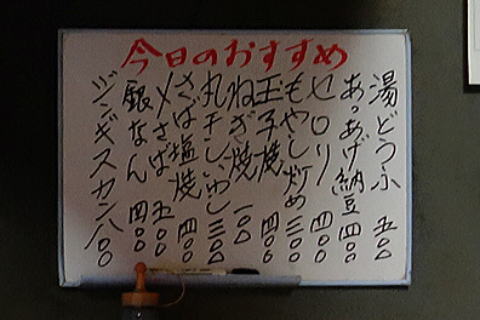 今日のおすすめ
湯どうふ 五〇〇
あつあげ納豆 四〇〇
セロリ 四〇〇
もやし炒め 三〇〇
玉子焼 四〇〇
ねぎ焼 一〇〇
丸干しいわし 三〇〇
さば塩焼 四〇〇
〆さば 五〇〇
銀なん 四〇〇
ジンギスカン 八〇〇